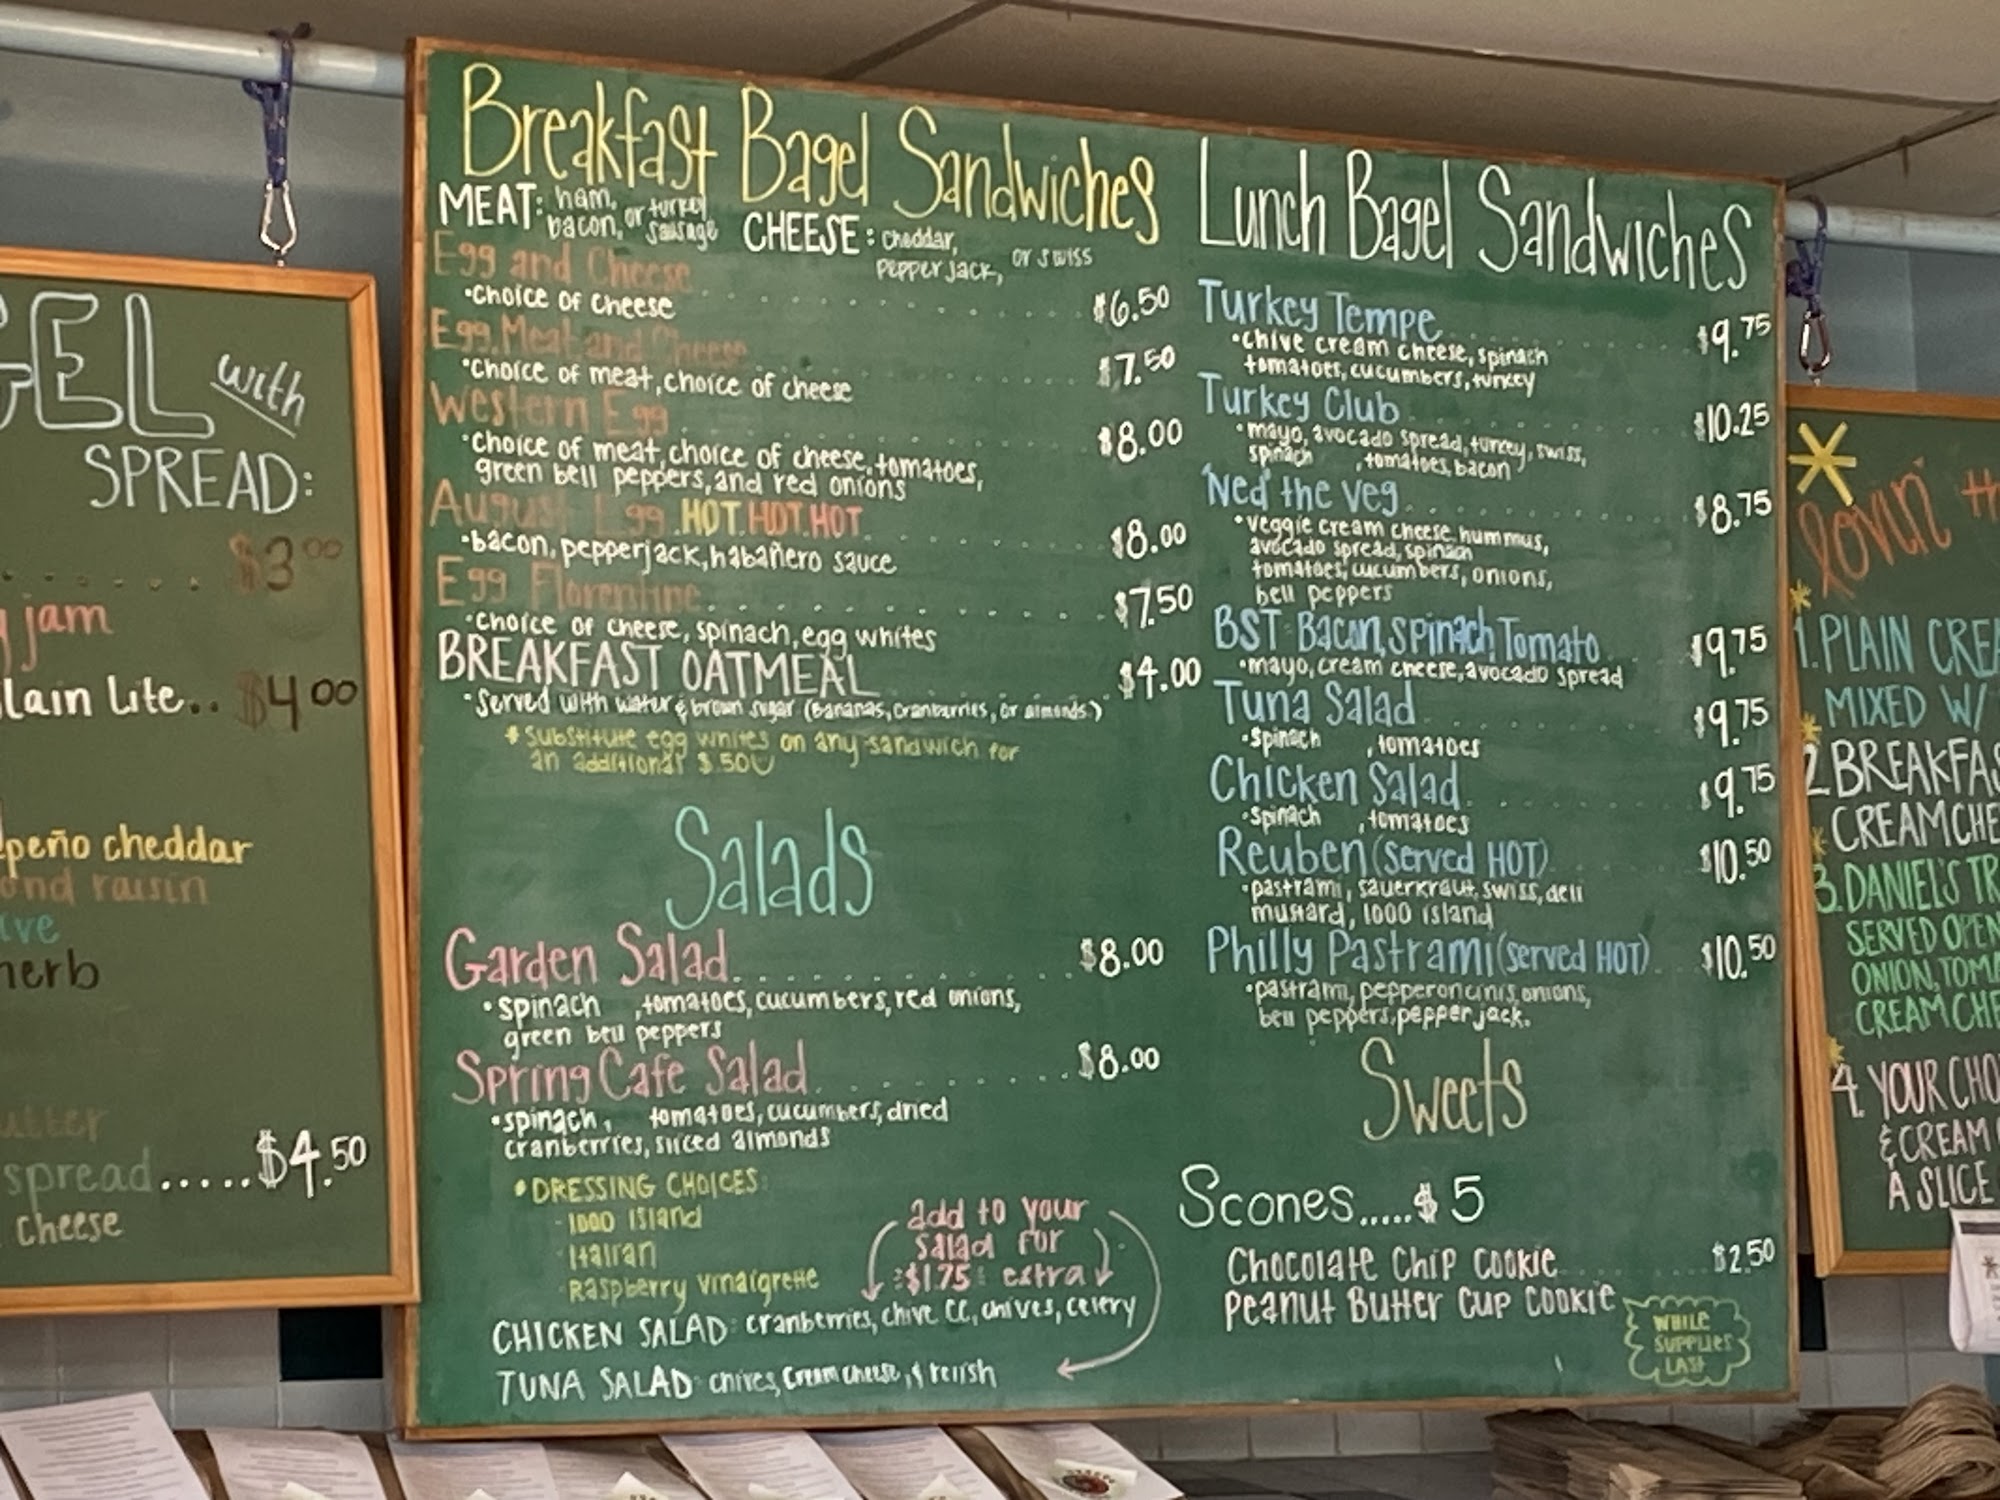 GEL with
SPREAD:
$3.00
jam
lain Lite.. $4.00
peño cheddar
ond raisin
ive
herb
utter
spread.....$4.50
cheese
Breakfast Bagel Sandwiches
MEAT: ham, bacon, or turkey sausage CHEESE: Cheddar, Pepper jack, or swiss
Egg and Cheese $6.50
•choice of cheese
Egg, Meat and Cheese $7.50
•choice of meat, choice of cheese
Western Egg $8.00
•choice of meat, choice of cheese, tomatoes,
green bell peppers, and red onions
August Egg HOT.HOT.HOT $8.00
•bacon, pepperjack, habañero sauce
Egg Florentine $7.50
•choice of cheese, spinach, egg whites
BREAKFAST OATMEAL $4.00
•Served with water & brown sugar (Bananas, Cranberries, or almonds)
* Substitute egg whites on any sandwich for
an additional $.50
Salads
Garden Salad $8.00
•spinach ,tomatoes, cucumbers, red onions,
green bell peppers
Spring Cafe Salad $8.00
•spinach, tomatoes, cucumbers, dried
cranberries, sliced almonds
*DRESSING CHOICES:
-1000 Island
-Italian
-Raspberry Vinaigrette
add to your
salad for
$1.75 extra
CHICKEN SALAD: cranberries, chive CC, chives, celery
TUNA SALAD: chives, Cream cheese, & relish
Lunch Bagel Sandwiches
Turkey Tempe $9.75
•chive cream cheese, spinach
tomatoes, cucumbers, turkey
Turkey Club $10.25
•mayo, avocado spread, turkey, swiss,
spinach ,tomatoes, bacon
'Ned' the Veg $8.75
•veggie cream cheese, hummus,
avocado spread, spinach
tomatoes, cucumbers, onions,
bell peppers
BST: Bacon, Spinach, Tomato $9.75
•mayo, cream cheese, avocado spread
Tuna Salad $9.75
•spinach ,tomatoes
Chicken Salad $9.75
•spinach ,tomatoes
Reuben (served HOT) $10.50
•pastrami, sauerkraut, swiss, deli
mustard, 1000 island
Philly Pastrami (served HOT) $10.50
•pastrami, pepperoncinis, onions,
bell peppers, pepper jack.
Sweets
Scones.....$5
Chocolate Chip Cookie $2.50
Peanut Butter Cup Cookie
WHILE
SUPPLIES
LAST
lovin' th
1. PLAIN CREA
MIXED W/
2 BREAKFAS
CREAM CHE
3. DANIEL'S TR
SERVED OPEN
ONION, TOMA
CREAM CHE
4. YOUR CHO
& CREAM
A SLICE